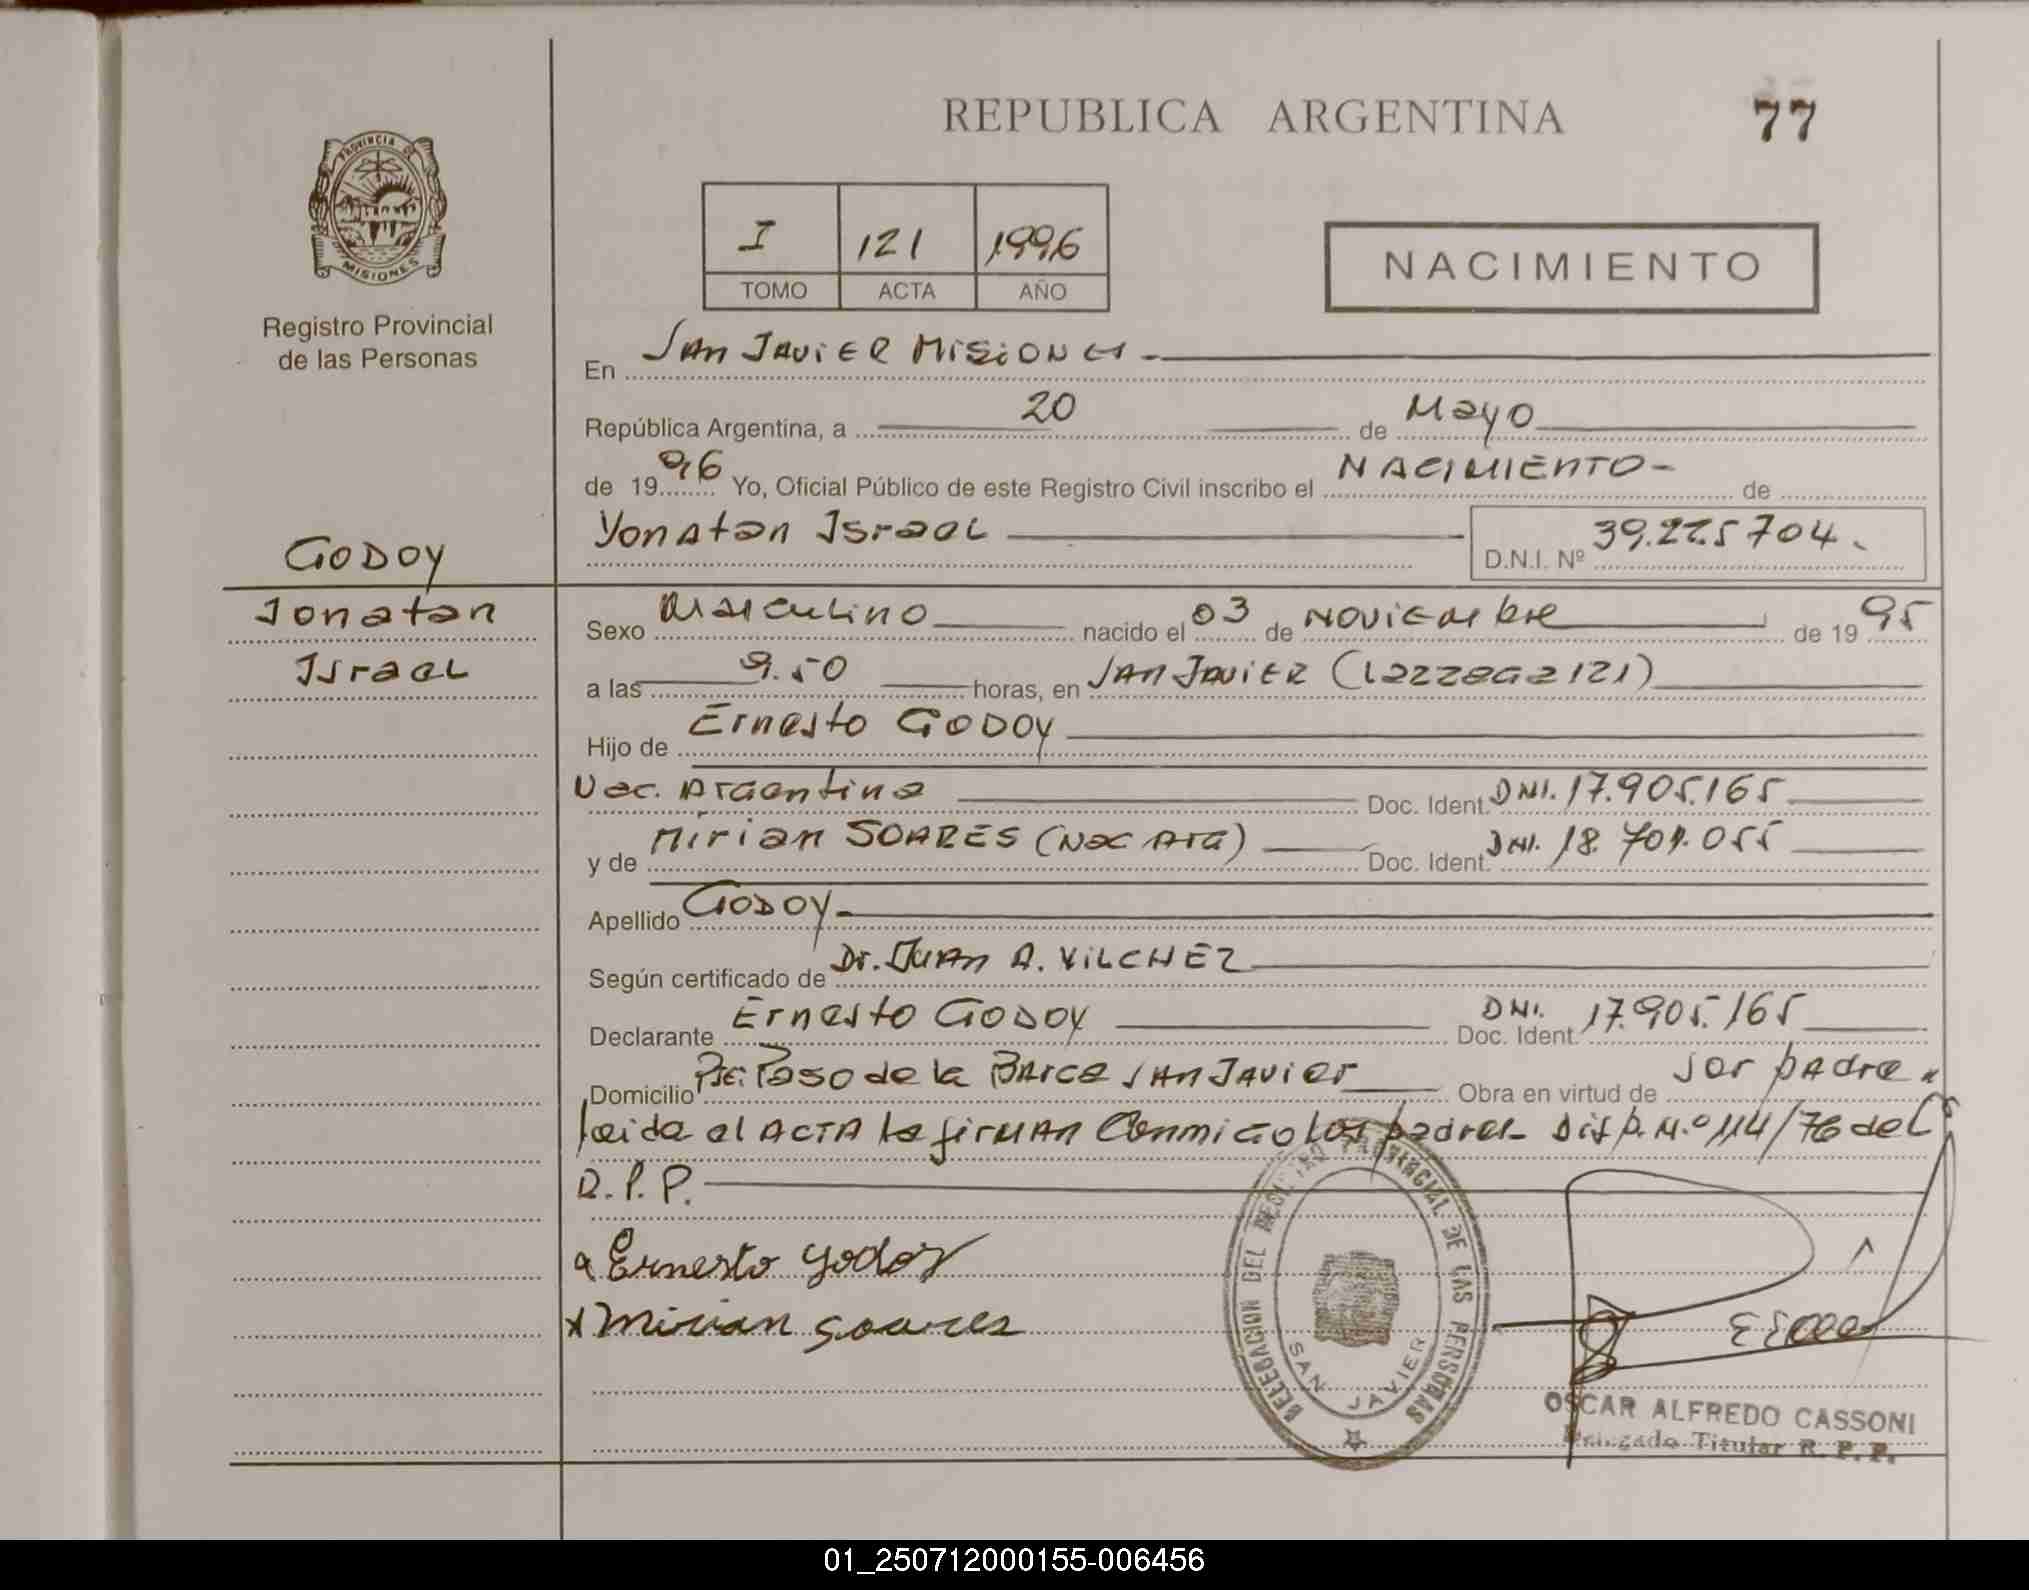 REPUBLICA ARGENTINA
77
PROVINCIA DE
MISIONES
Registro Provincial
de las Personas
I 121 1996
TOMO ACTA AÑO
NACIMIENTO
En San Javier Misiones -
República Argentina, a 20 de Mayo
de 1996 Yo, Oficial Público de este Registro Civil inscribo el NACIMIENTO - de
Yonatan Israel D.N.I. Nº 39.225704.
GODOY
Jonatan
Israel
Sexo Masculino nacido el 03 de Noviembre de 1995
a las 9.50 horas, en San Javier (L 121)
Hijo de Ernesto GODOY
Nac. Argentina Doc. Ident. DNI. 17.905.165
y de Mirian SOARES (Nac Arg) Doc. Ident. DNI. 18.709.055
Apellido GODOY -
Según certificado de Dr. Juan A. VILCHEZ
Declarante Ernesto GODOY Doc. Ident. DNI. 17.905.165
Domicilio Paso de la Barca San Javier Obra en virtud de ser padre
leida el ACTA la firman Conmigo los padres - Disp. N.º 114/76 del
R.P.P.
Ernesto Godoy
x Mirian Soares
DELEGACION DEL REGISTRO PROVINCIAL DE LAS PERSONAS
SAN JAVIER
OSCAR ALFREDO CASSONI
Delegado Titular R. P. P.
01_250712000155-006456